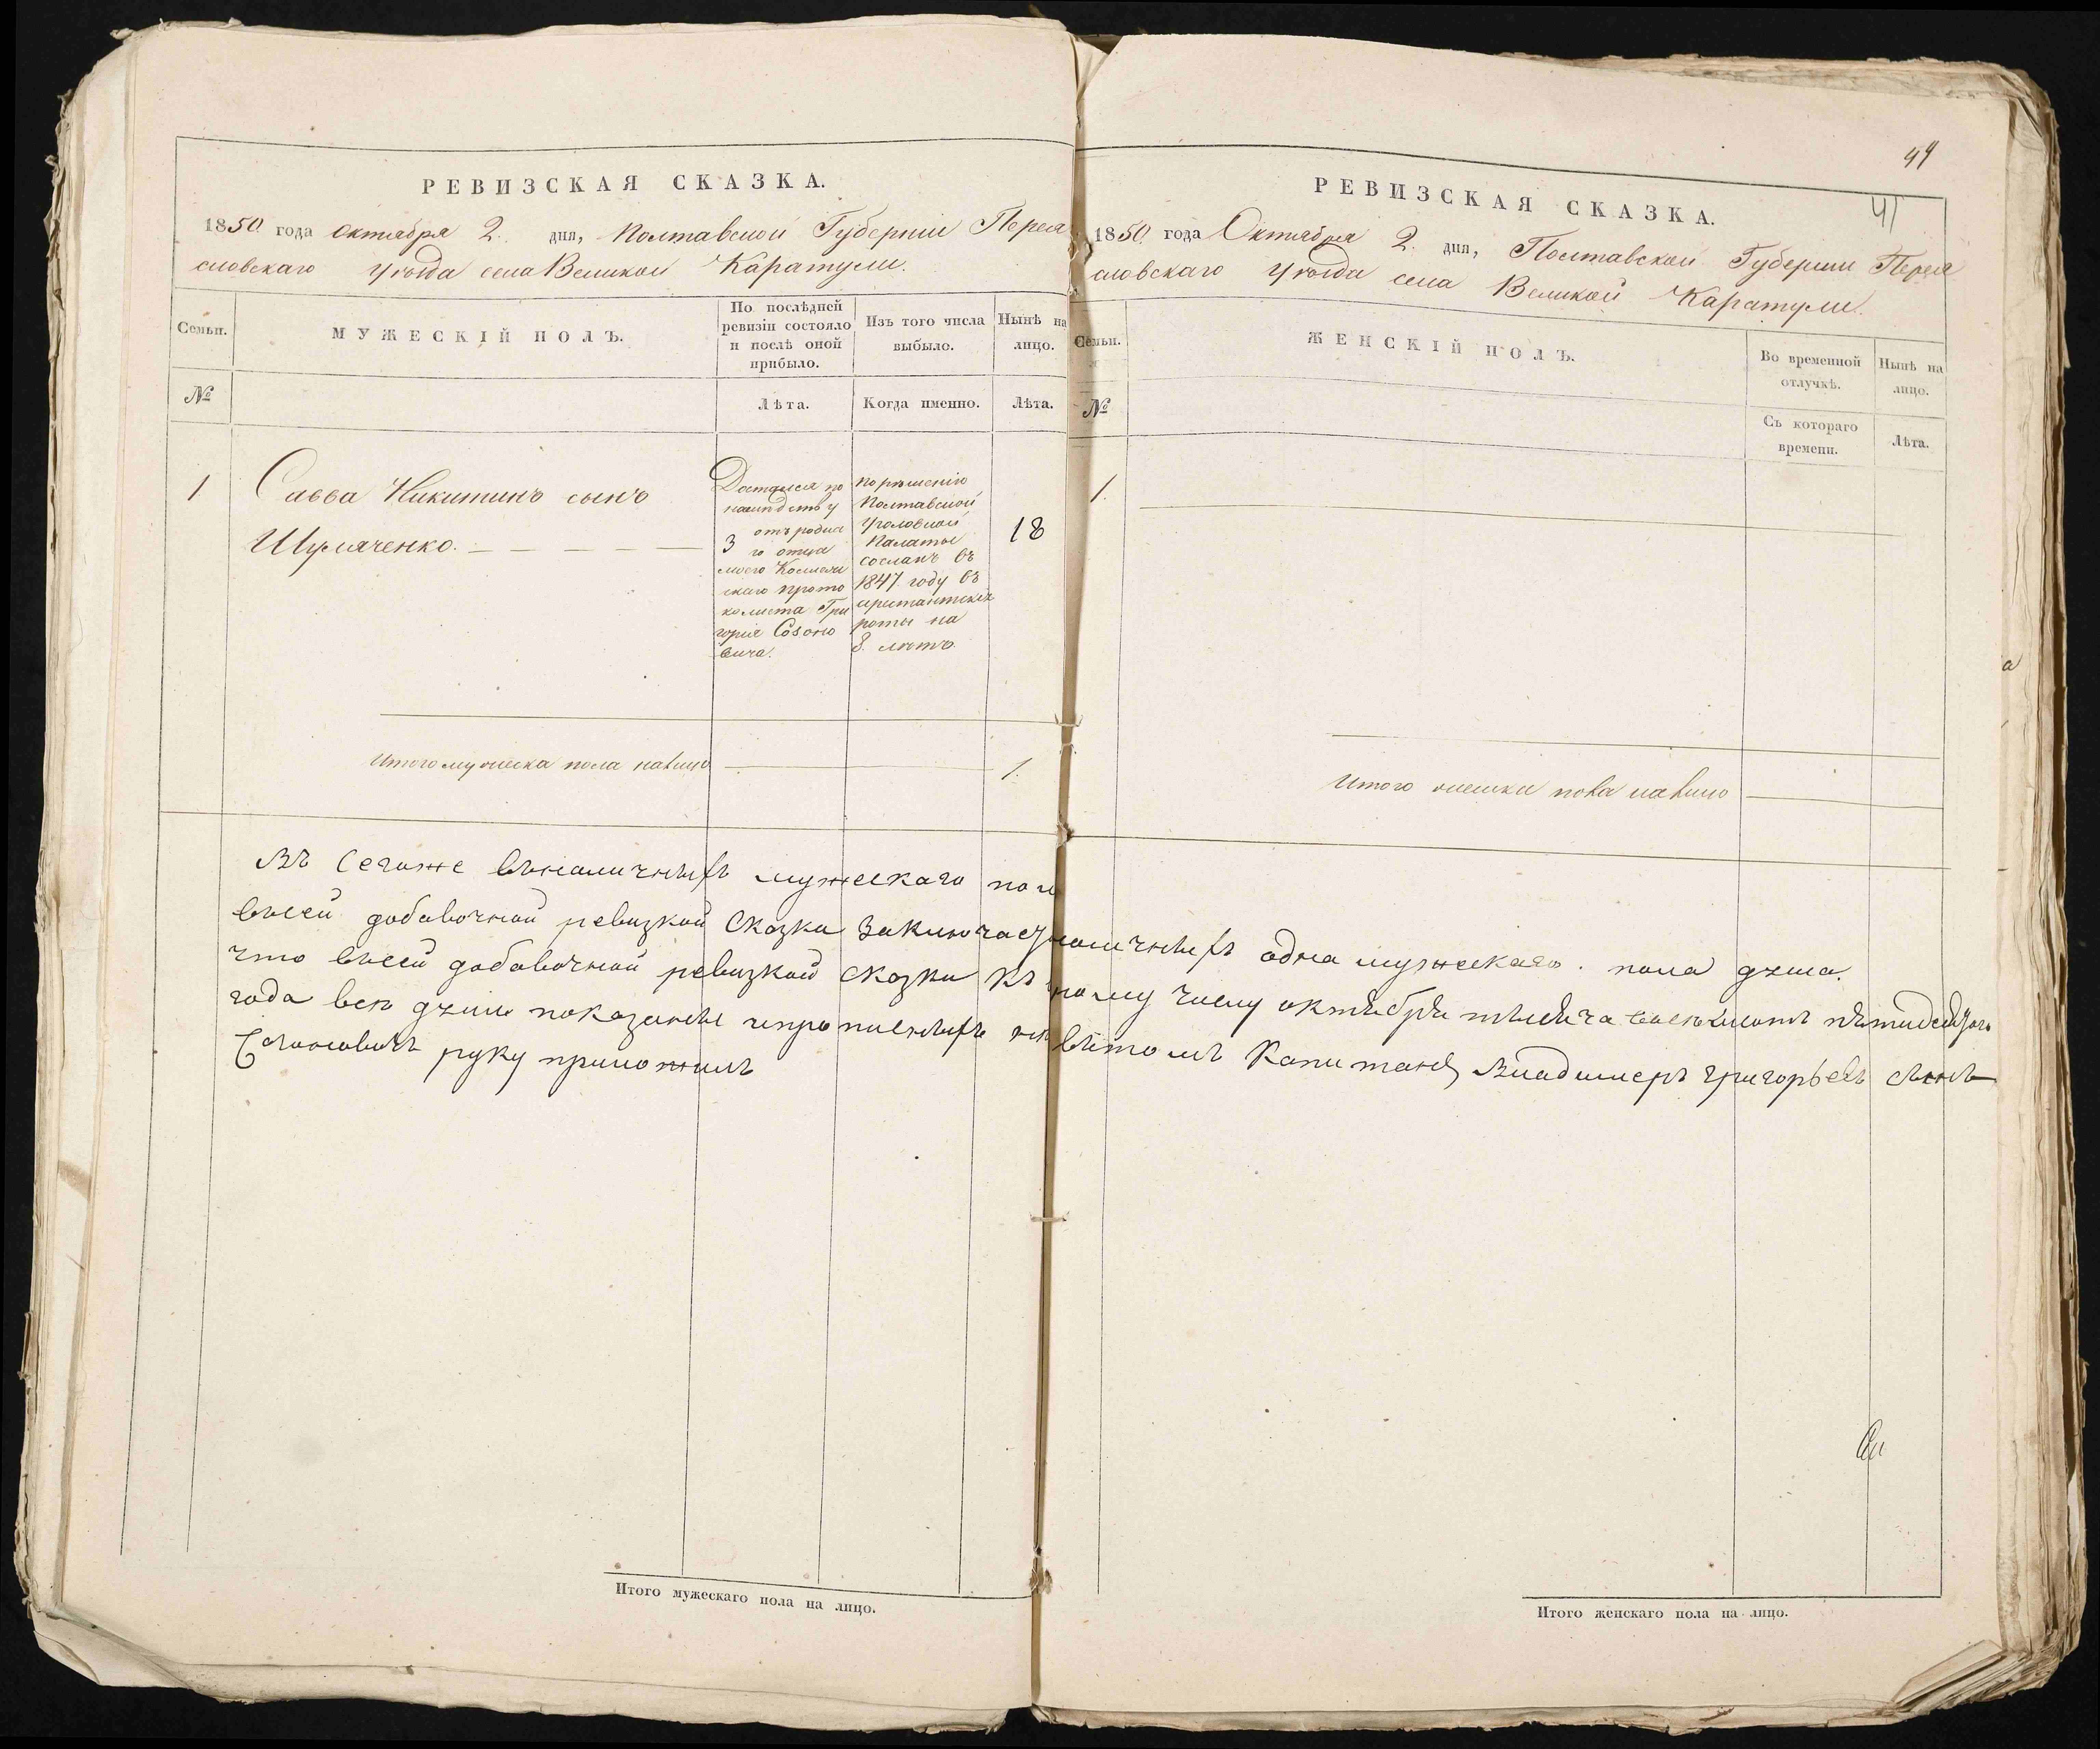 РЕВИЗСКАЯ СКАЗКА.
1850 года октября 2. дня, Полтавской Губерніи Перея
славскаго уѣзда села Великой Каратули.
Семьи.
МУЖЕСКІЙ ПОЛЪ.
По послѣдней
ревизіи состояло
и послѣ оной
прибыло.
Изъ того числа
выбыло.
Нынѣ на
лицо.
№
Лѣта.
Когда именно.
Лѣта.
1
Савва Никитинъ сынъ
Шуляченко.
Достался по
наслѣдству
отъ родна
3 го отца
моего Коллеж
скаго прото
колиста Гри
горія Созоно
вича.
По рѣшенію
Полтавской
Уголовной
Палаты
сосланъ въ
1847 году въ
арестантскія
роты на
8. лѣтъ.
18
Итого мужеска пола налицо
1.
РЕВИЗСКАЯ СКАЗКА.
44
41
1850 года Октября 2. дня, Полтавской Губерніи Перея
славскаго уѣзда села Великой Каратули.
Семьи.
ЖЕНСКІЙ ПОЛЪ.
Во временной
отлучкѣ.
Нынѣ на
лицо.
№
Съ котораго
времени.
Лѣта.
1.
Итого женска пола налицо
мужескаго
всей добавочной ревизкой сказки заключает наличныхъ одна мужескаго. пола душа.
что всей добавочной ревизкой сказки къ числу октября
года всѣ души показаны Капитанъ Владимеръ Григорьевъ сынъ
Созоновичъ руку приложилъ
Итого мужескаго пола на лицо.
Итого женскаго пола на лицо.